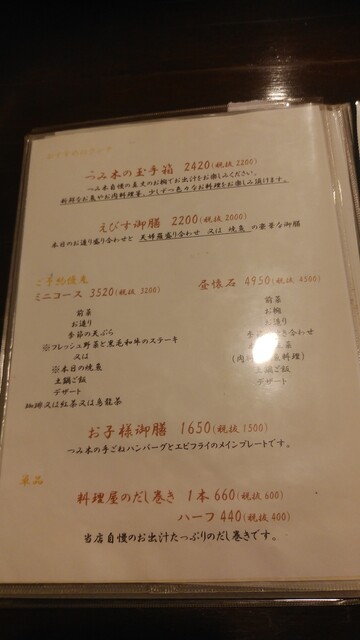 つみ木の玉手箱 2420(税抜 2200)
つみ木自慢の真丈のお椀でお出汁をお楽しみください。
新鮮なお魚やお肉料理等、少しずつ色々なお料理をお楽しみ頂けます。
えびす御膳 2200(税抜 2000)
本日のお造り盛り合わせと 天婦羅盛り合わせ 又は 焼魚 の豪華な御膳
ご予約優先
ミニコース 3520(税抜 3200)
前菜
お造り
季節の天ぷら
※フレッシュ野菜と黒毛和牛のステーキ
又は
※本日の焼魚
土鍋ご飯
デザート
珈琲又は紅茶又は烏龍茶
昼懐石 4950(税抜 4500)
前菜
お椀
お造り
季節の き合わせ
菜
(肉料 魚料理)
土鍋ご飯
デザート
お子様御膳 1650(税抜 1500)
つみ木の手ごねハンバーグとエビフライのメインプレートです。
単品
料理屋のだし巻き 1本 660(税抜 600)
ハーフ 440(税抜 400)
当店自慢のお出汁たっぷりのだし巻きです。